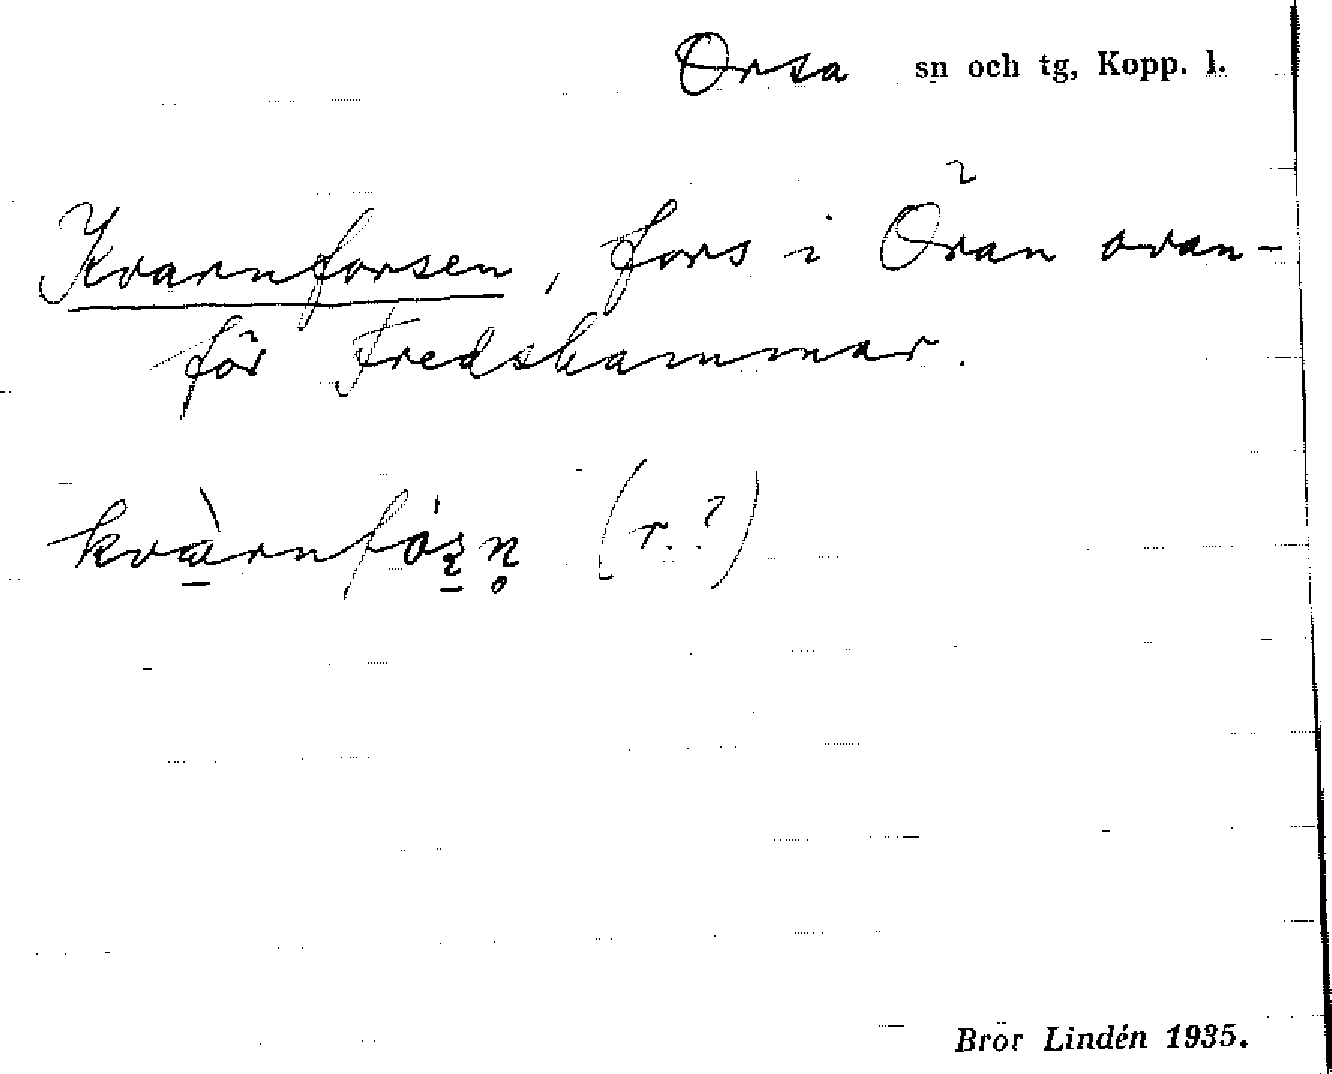 Orsa sn och tg, Kopp. l.
Kvarnforsen, fors i Öran ovan-
för Fredshammar.
(r.?)
Bror Lindén 1935.